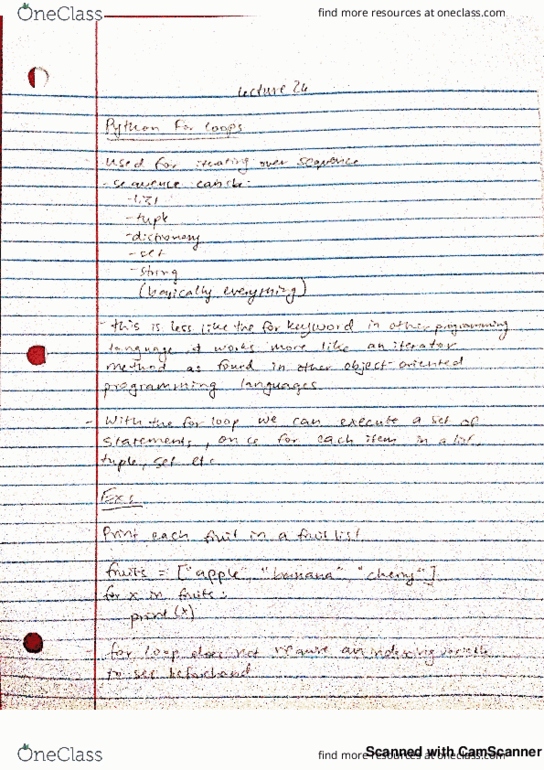 OneClass
find more resources at oneclass.com
Lecture 26
Python For Loops
- Used for iterating over sequence
- sequence can be:
- list
- tuple
- dictionary
- set
- string
(basically everything)
- this is less like the for keyword in other programming
language & works more like an iterator
method as found in other object-oriented
programming languages
- With the for loop we can execute a set of
statements, once for each item in a list,
tuple, set etc
Ex:
Print each fruit in a fruit list
fruits = ["apple", "banana", "cherry"]
for x in fruits:
print(x)
- for loop does not require an indexing variable
to set beforehand
OneClass
find more resources at oneclass.com
Scanned with CamScanner